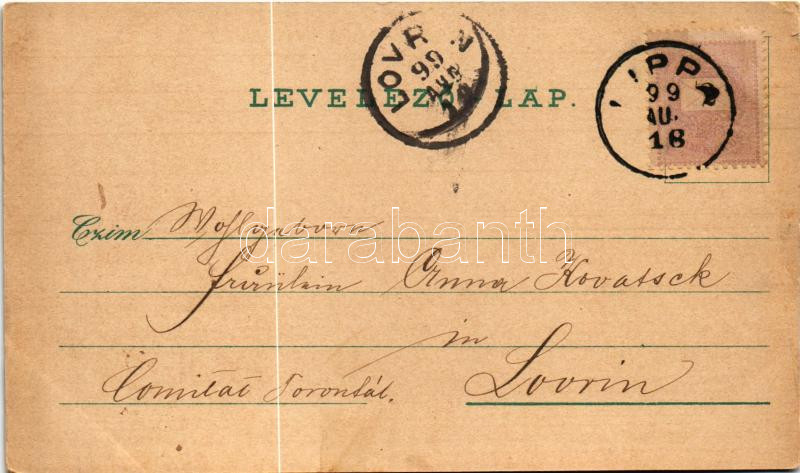 LOVRIN
99
AUG
LEVELEZŐ-LAP.
LIPPA
99
AU.
16
Czim Wohlgeboren
darabanth
Fräulein Anna Kovatsck
in
Comitat Torontál. Lovrin